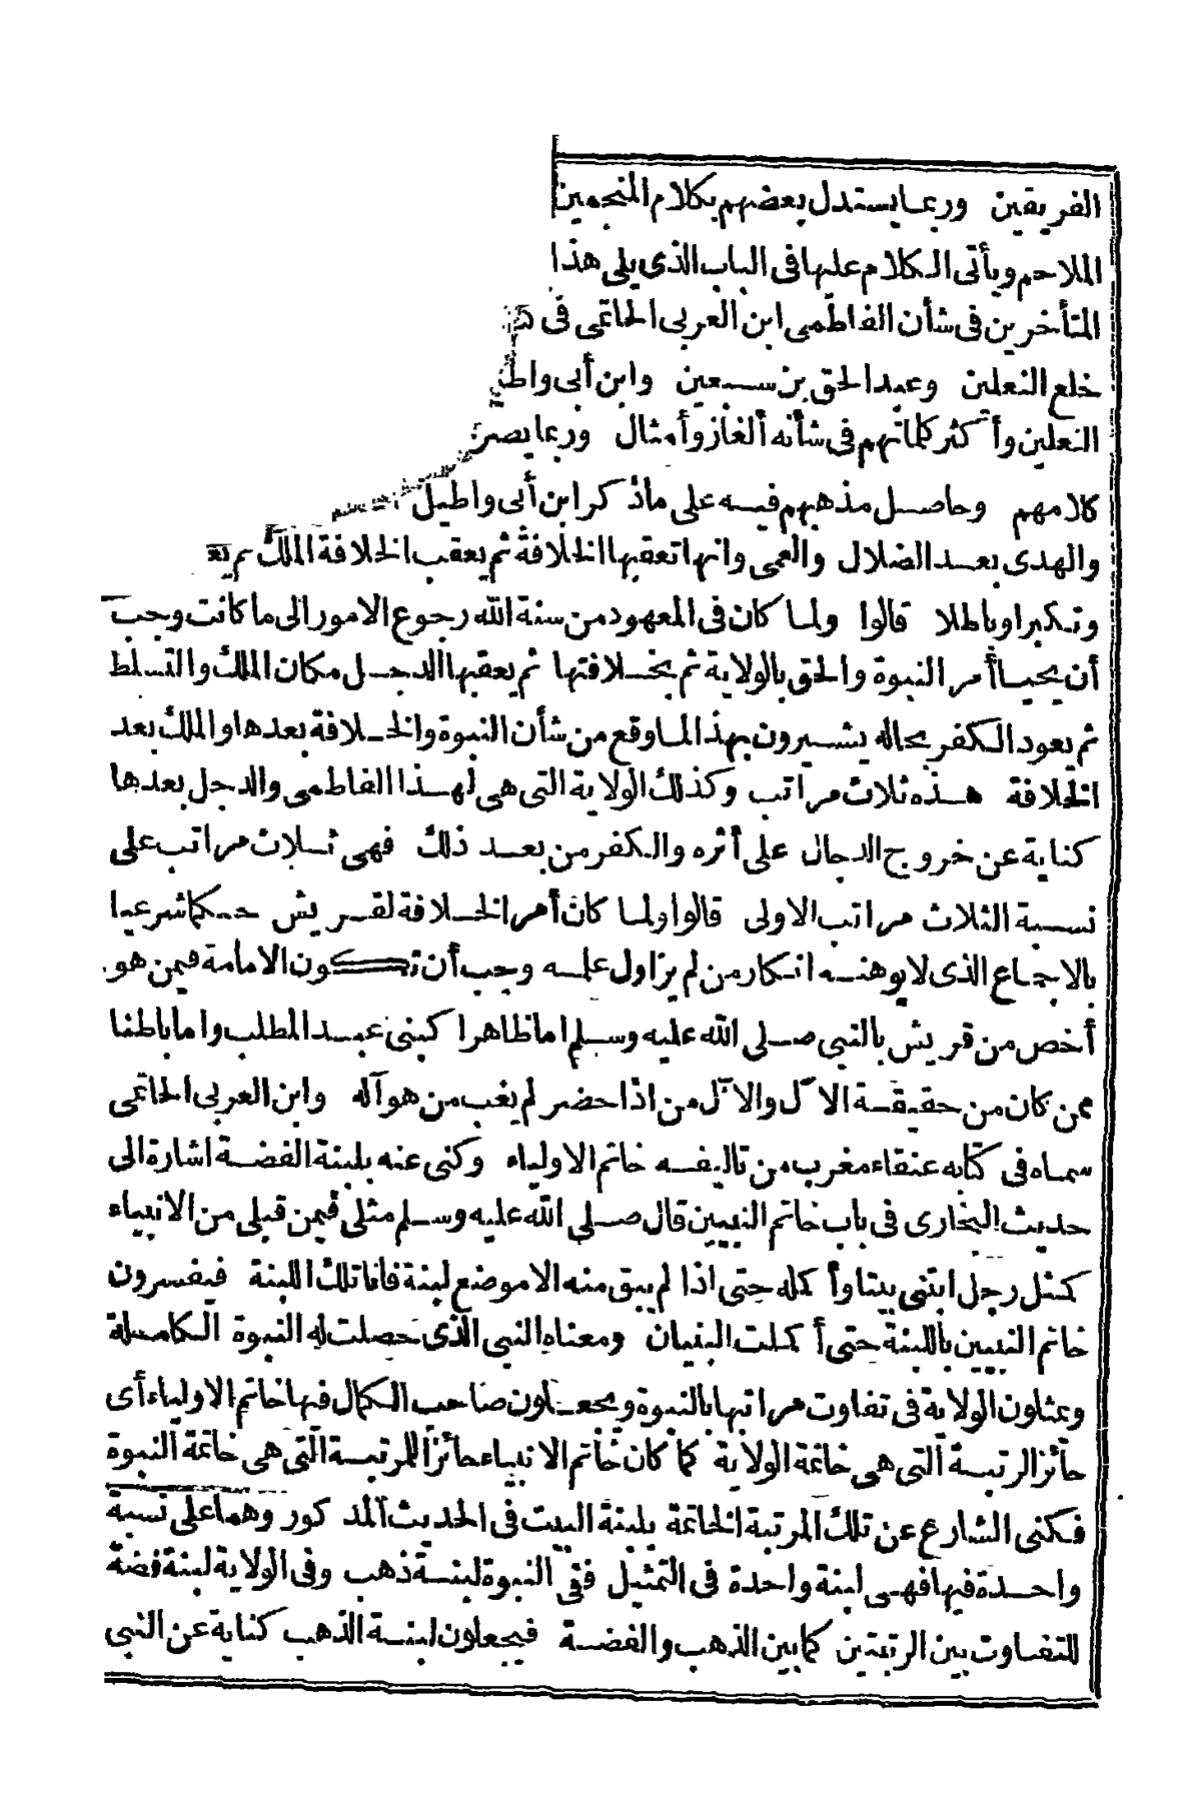 الفريقين وربما يستدل بعضهم بكلام المنجمين
الملاحم ويأتى الكلام عليها فى الباب الذى يلى هذا
المتأخرين فى شأن الفاطمى ابن العربى الحاتمى فى
خلع النعلين وعبد الحق بن سبعين وابن أبى واطي
النعلين وأكثر كلماتهم فى شأنه ألغاز وأمثال وربما يصر
كلامهم وحاصل مذهبهم فيه على ما ذكر ابن أبى واطيل
والهدى بعد الضلال والعمى وانها تعقبها الخلافة ثم يعقب الخلافة الملك ثم يع
وتكبرا وباطلا قالوا ولما كان فى المعهود من سنة الله رجوع الامور الى ما كانت وجب
أن يحيا أمر النبوة والحق بالولاية ثم بخلافتها ثم يعقبها الدجل مكان الملك والتسلط
ثم يعود الكفر بحاله يشيرون بهذا لما وقع من شأن النبوة والخلافة بعدها والملك بعد
الخلافة هذه ثلاث مراتب وكذلك الولاية التى هى لهذا الفاطمى والدجل بعدها
كناية عن خروج الدجال على أثره والكفر من بعد ذلك فهى ثلاث مراتب على
نسبة الثلاث مراتب الاولى قالوا ولما كان أمر الخلافة لقريش حكما شرعيا
بالاجماع الذى لا يوهنه انكار من لم يزاول علمه وجب أن تكون الامامة فيمن هو
أخص من قريش بالنبى صلى الله عليه وسلم اما ظاهرا كبنى عبد المطلب واما باطنا
ممن كان من حقيقة الآل والآل من اذا حضر لم يغب من هو آله وابن العربى الحاتمى
سماه فى كتابه عنقاء مغرب من تاليفه خاتم الاولياء وكنى عنه بلبنة الفضة اشارة الى
حديث البخارى فى باب خاتم النبيين قال صلى الله عليه وسلم مثلى فيمن قبلى من الانبياء
كمثل رجل ابتنى بيتا وأكمله حتى اذا لم يبق منه الا موضع لبنة فانا تلك اللبنة فيفسرون
خاتم النبيين باللبنة حتى أكملت البنيان ومعناه النبى الذى حصلت له النبوة الكاملة
ويمثلون الولاية فى تفاوت مراتبها بالنبوة ويجعلون صاحب الكمال فيها خاتم الاولياء أى
حائز الرتبة التى هى خاتمة الولاية كما كان خاتم الانبياء حائزا للمرتبة التى هى خاتمة النبوة
فكنى الشارع عن تلك المرتبة الخاتمة بلبنة البيت فى الحديث المذكور وهما على نسبة
واحدة فيها فهى لبنة واحدة فى التمثيل ففى النبوة لبنة ذهب وفى الولاية لبنة فضة
للتفاوت بين الرتبتين كما بين الذهب والفضة فيجعلون لبنة الذهب كناية عن النبى